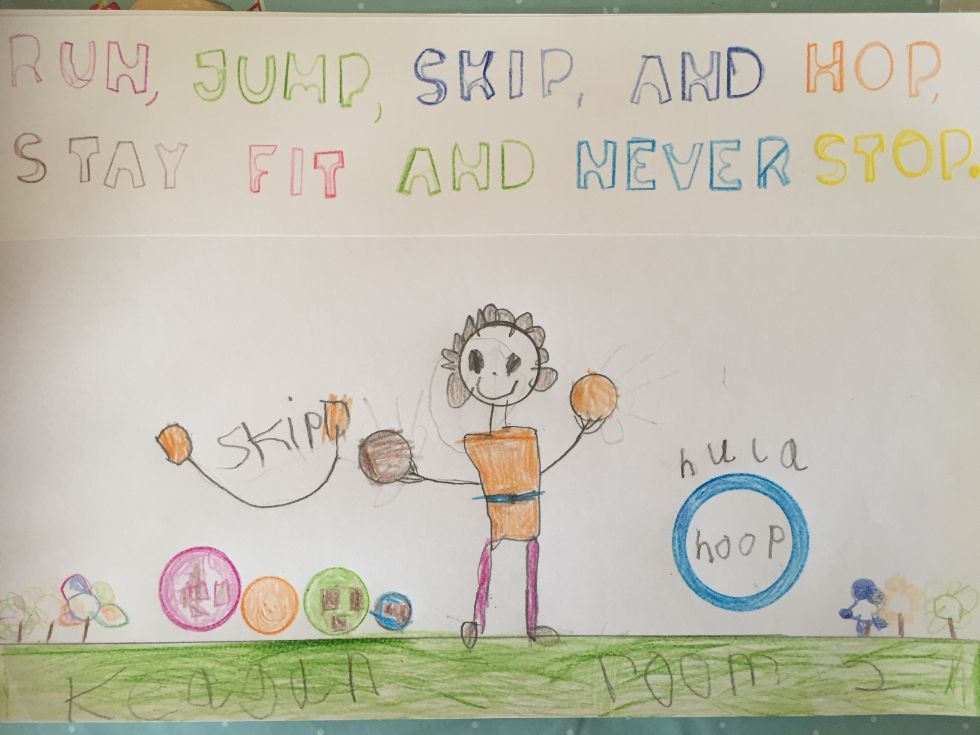 RUN, JUMP, SKIP, AND HOP,
STAY FIT AND NEVER STOP.
skip
hula
hoop
Keagan room 5